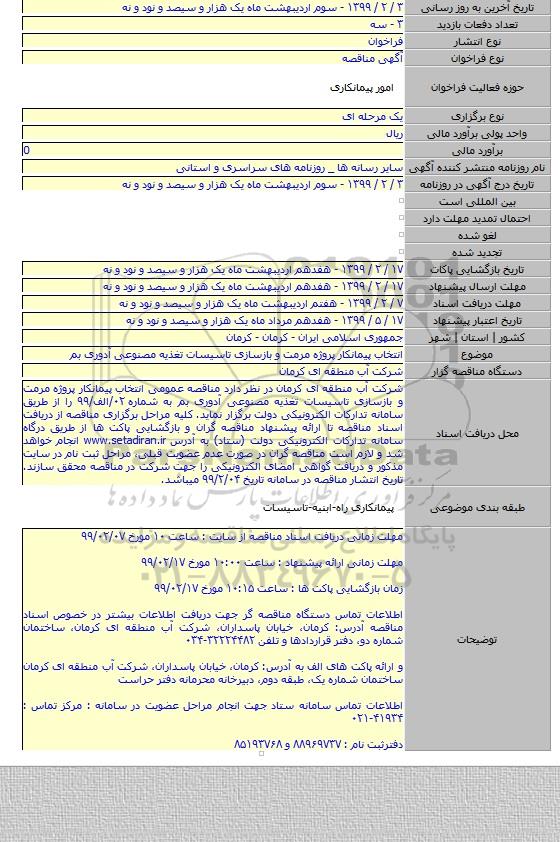 تاریخ آخرین به روز رسانی
۳ / ۲ / ۱۳۹۹ - سوم اردیبهشت ماه یک هزار و سیصد و نود و نه
تعداد دفعات بازدید
۳ - سه
نوع انتشار
فراخوان
نوع فراخوان
آگهی مناقصه
حوزه فعالیت فراخوان
امور پیمانکاری
نوع برگزاری
یک مرحله ای
واحد پولی برآورد مالی
ریال
برآورد مالی
0
نام روزنامه منتشر کننده آگهی
سایر رسانه ها _ روزنامه های سراسری و استانی
تاریخ درج آگهی در روزنامه
۳ / ۲ / ۱۳۹۹ - سوم اردیبهشت ماه یک هزار و سیصد و نود و نه
بین المللی است
احتمال تمدید مهلت دارد
لغو شده
تجدید شده
تاریخ بازگشایی پاکات
۱۷ / ۲ / ۱۳۹۹ - هفدهم اردیبهشت ماه یک هزار و سیصد و نود و نه
مهلت ارسال پیشنهاد
۱۷ / ۲ / ۱۳۹۹ - هفدهم اردیبهشت ماه یک هزار و سیصد و نود و نه
مهلت دریافت اسناد
۷ / ۲ / ۱۳۹۹ - هفتم اردیبهشت ماه یک هزار و سیصد و نود و نه
تاریخ اعتبار پیشنهاد
۱۷ / ۵ / ۱۳۹۹ - هفدهم مرداد ماه یک هزار و سیصد و نود و نه
کشور | استان | شهر
جمهوری اسلامی ایران - کرمان - کرمان
موضوع
انتخاب پیمانکار پروژه مرمت و بازسازی تاسیسات تغذیه مصنوعی آدوری بم
دستگاه مناقصه گزار
شرکت آب منطقه ای کرمان
محل دریافت اسناد
شرکت آب منطقه ای کرمان در نظر دارد مناقصه عمومی انتخاب پیمانکار پروژه مرمت
و بازسازی تاسیسات تغذیه مصنوعی آدوری بم به شماره ۰۲/الف/۹۹ را از طریق
سامانه تدارکات الکترونیکی دولت برگزار نماید. کلیه مراحل برگزاری مناقصه از دریافت
اسناد مناقصه تا ارائه پیشنهاد مناقصه گران و بازگشایی پاکت ها از طریق درگاه
سامانه تدارکات الکترونیکی دولت (ستاد) به آدرس www.setadiran.ir انجام خواهد
شد و لازم است مناقصه گران در صورت عدم عضویت قبلی، مراحل ثبت نام در سایت
مذکور و دریافت گواهی امضای الکترونیکی را جهت شرکت در مناقصه محقق سازند.
تاریخ انتشار مناقصه در سامانه تاریخ ۹۹/۲/۰۴ میباشد.
طبقه بندی موضوعی
پیمانکاری راه-ابنیه-تاسیسات
توضیحات
مهلت زمانی دریافت اسناد مناقصه از سایت : ساعت ۱۰ مورخ ۹۹/۰۲/۰۷
مهلت زمانی ارائه پیشنهاد : ساعت ۱۰:۰۰ مورخ ۹۹/۰۲/۱۷
زمان بازگشایی پاکت ها : ساعت ۱۰:۱۵ مورخ ۹۹/۰۲/۱۷
اطلاعات تماس دستگاه مناقصه گر جهت دریافت اطلاعات بیشتر در خصوص اسناد
مناقصه آدرس: کرمان، خیابان پاسداران، شرکت آب منطقه ای کرمان، ساختمان
شماره دو، دفتر قراردادها و تلفن ۳۲۲۲۴۴۸۲-۰۳۴
و ارائه پاکت های الف به آدرس: کرمان، خیابان پاسداران، شرکت آب منطقه ای کرمان
ساختمان شماره یک، طبقه دوم، دبیرخانه محرمانه دفتر حراست
اطلاعات تماس سامانه ستاد جهت انجام مراحل عضویت در سامانه : مرکز تماس :
۴۱۹۳۴-۰۲۱
دفترثبت نام : ۸۸۹۶۹۷۳۷ و ۸۵۱۹۳۷۶۸
مرکز فرآوری اطلاعات پارس نماد داده ها
پایگاه اطلاع رسانی مناقصه و مزایده
۰۲۱-۸۸۳۴۹۶۷۰-۵